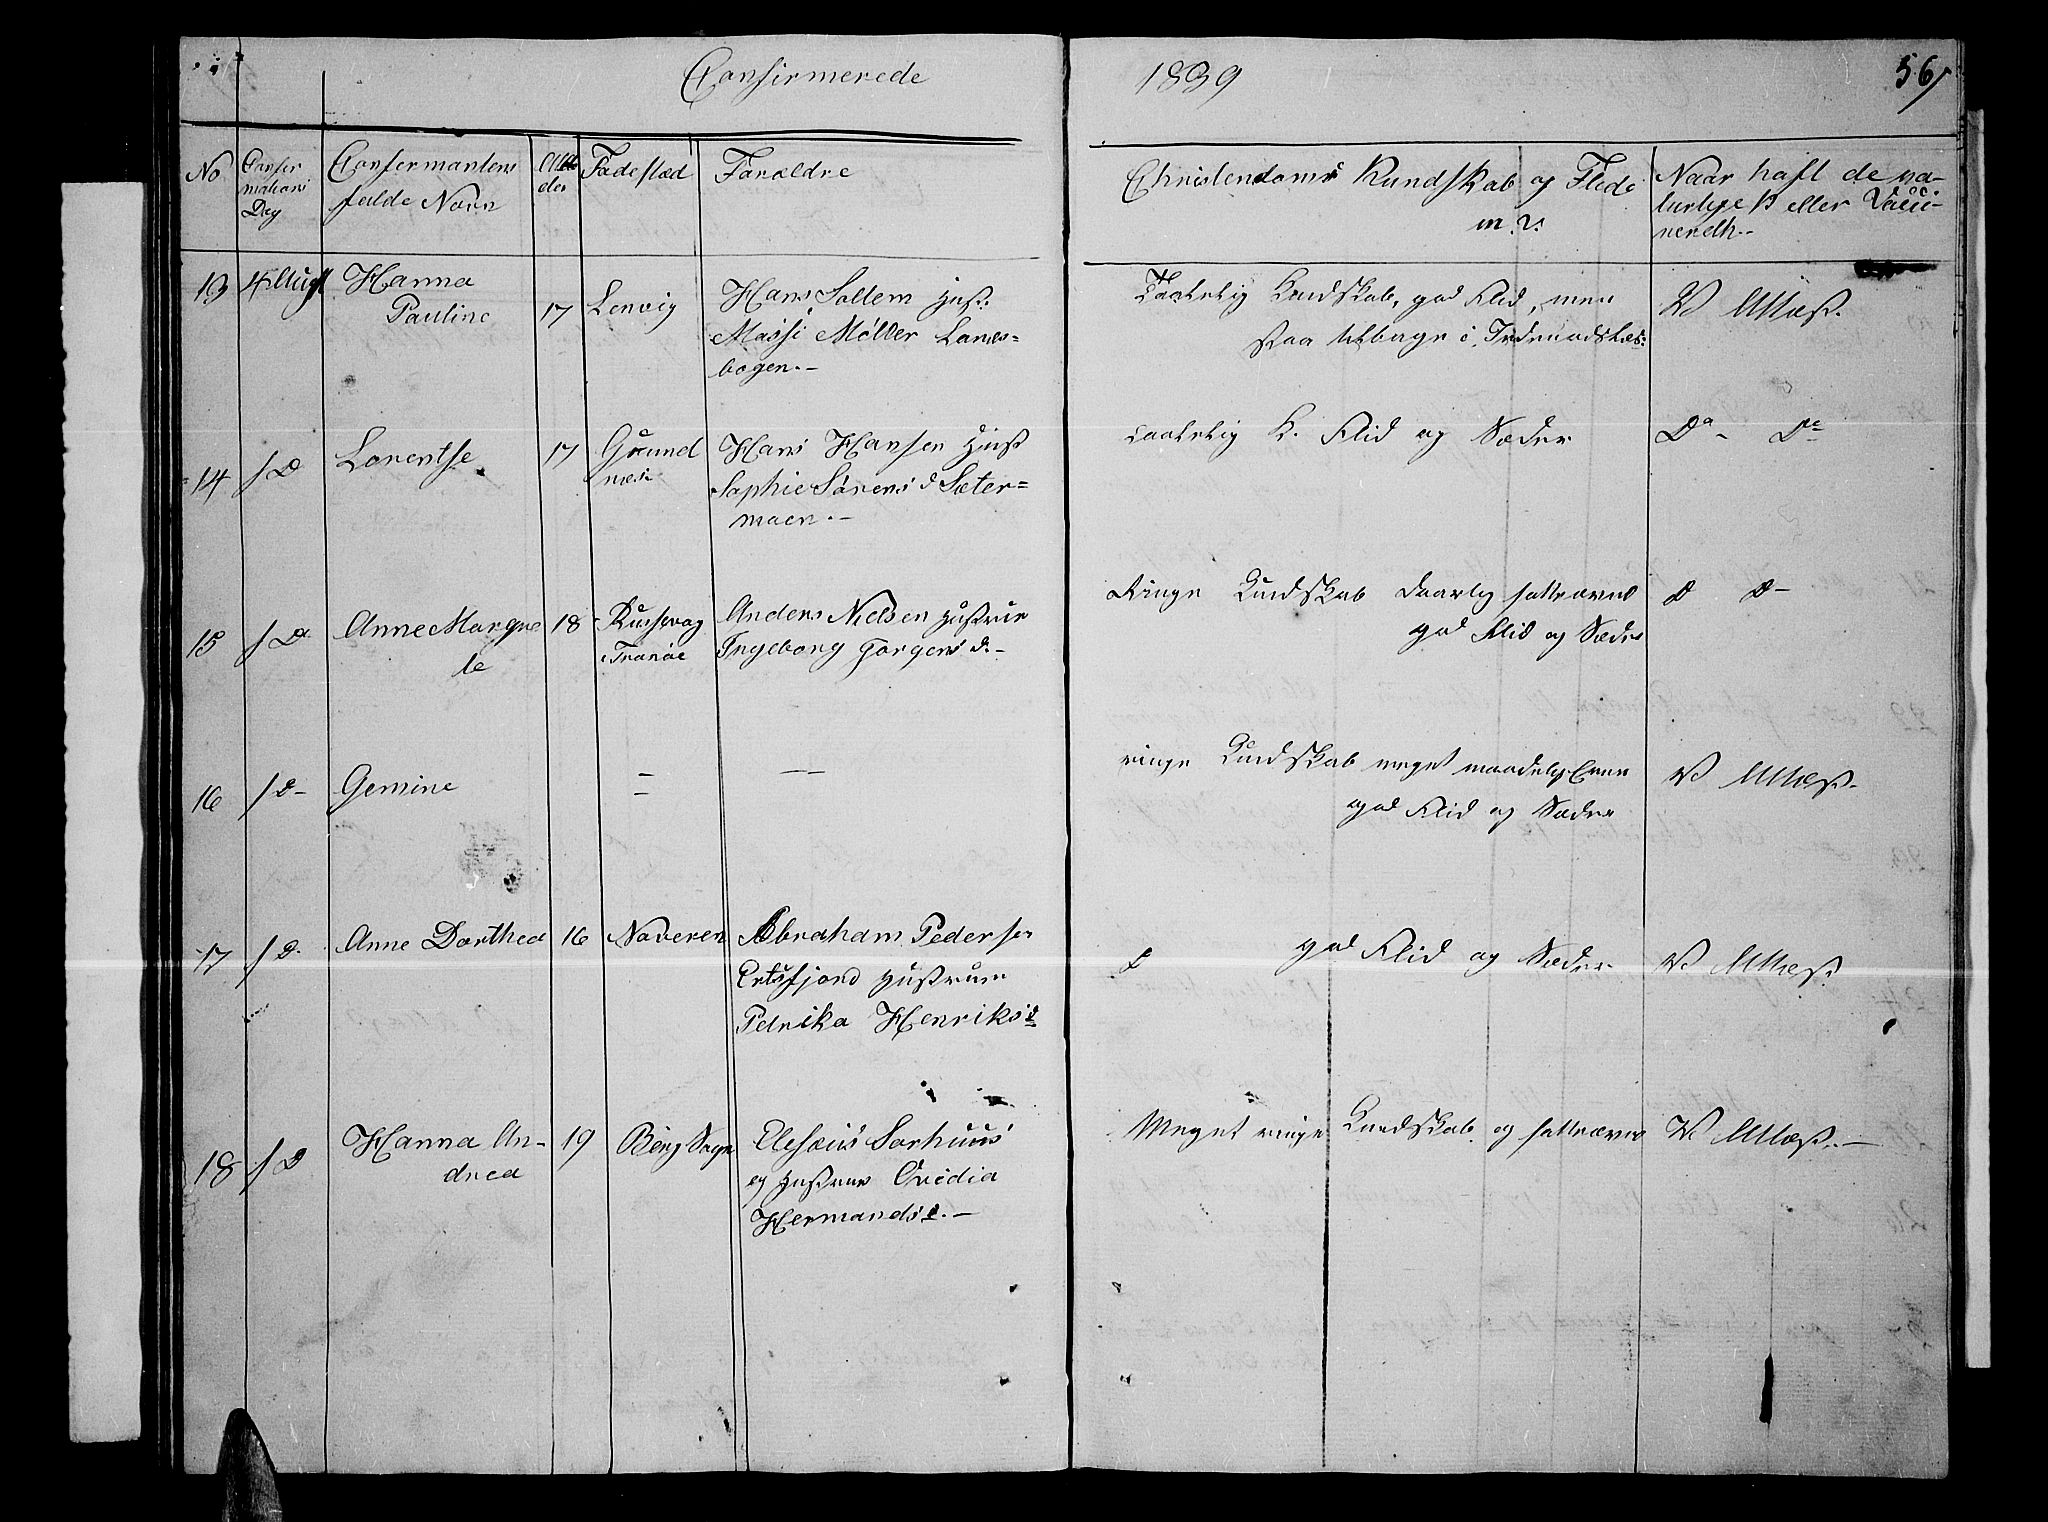 Confirmerede
1839
56
No
Confir
mations
Dag
Confirmantens
fulde Navn
Al
der
Fødested
Forældre
Christendoms Kundskab og Flid
m. v.
Naar haft de na-
turlige K eller Vacci-
nereth.
13 4 Aug
Hanna
Pauline
17 Lenvig
Hans Sollem Hust.
Massi Møller Lanes-
bogen.-
Taalelig Kundskab, god Flid, men
staar tilbage i
V Attest.
14 / D
Lorentse
17 Grund
næs
Hans Hansen Hust
Sophie Sørens d Sæter-
moen.-
taalelig K. Flid og Sæder
Do- Do
15 / D
Anne Margre
te
18
Tranøe
Anders Nielsen Hustrue
Ingeborg Jørgens d.-
Ringe Kundskab daarlig fatteevne
god Flid og Sæder
D D-
16 / D-
Gemine
ringe Kundskab meget maadelig Evne
god Flid og Sæder
V Attest.
17 / D.
Anne Dorthea 16
Abraham Pedersen
Ertsfjord Hustrue
Petrika Henriks d
god Flid og Sæder
V. Attest
18 / D
Hanna An-
drea
19 Berg Sogn
Elesæus Sorhuus
og Hustrue Ovidia
Hermands d.-
Meget ringe Kundskab og fatteevne
V Attest.-